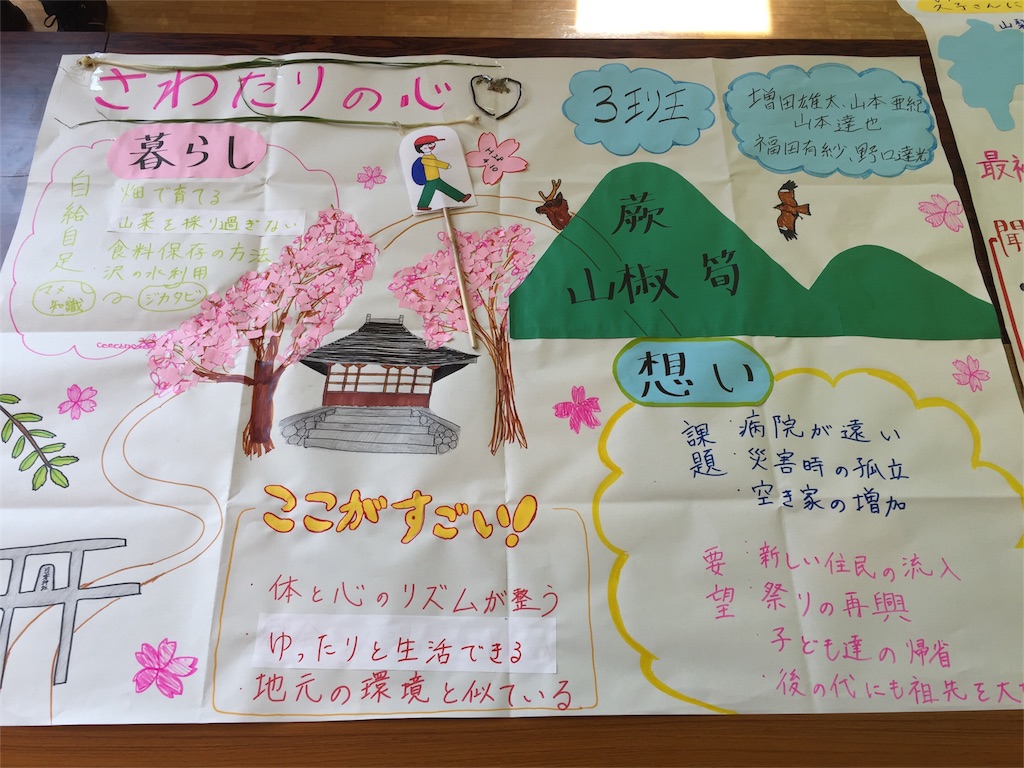 さわたりの心
3班
増田雄太、山本亜紀
山本達也
福田有紗、野口達光
暮らし
自給自足
畑で育てる
山菜を採り過ぎない
食料保存の方法
沢の水利用
マメ知識
ジカタビ
蕨
山椒 筍
想い
課題
・病院が遠い
・災害時の孤立
・空き家の増加
要望
・新しい住民の流入
・祭りの再興
・子ども達の帰省
・後の代にも祖先を大
ここがすごい!
・体と心のリズムが整う
ゆったりと生活できる
・地元の環境と似ている
最
聞